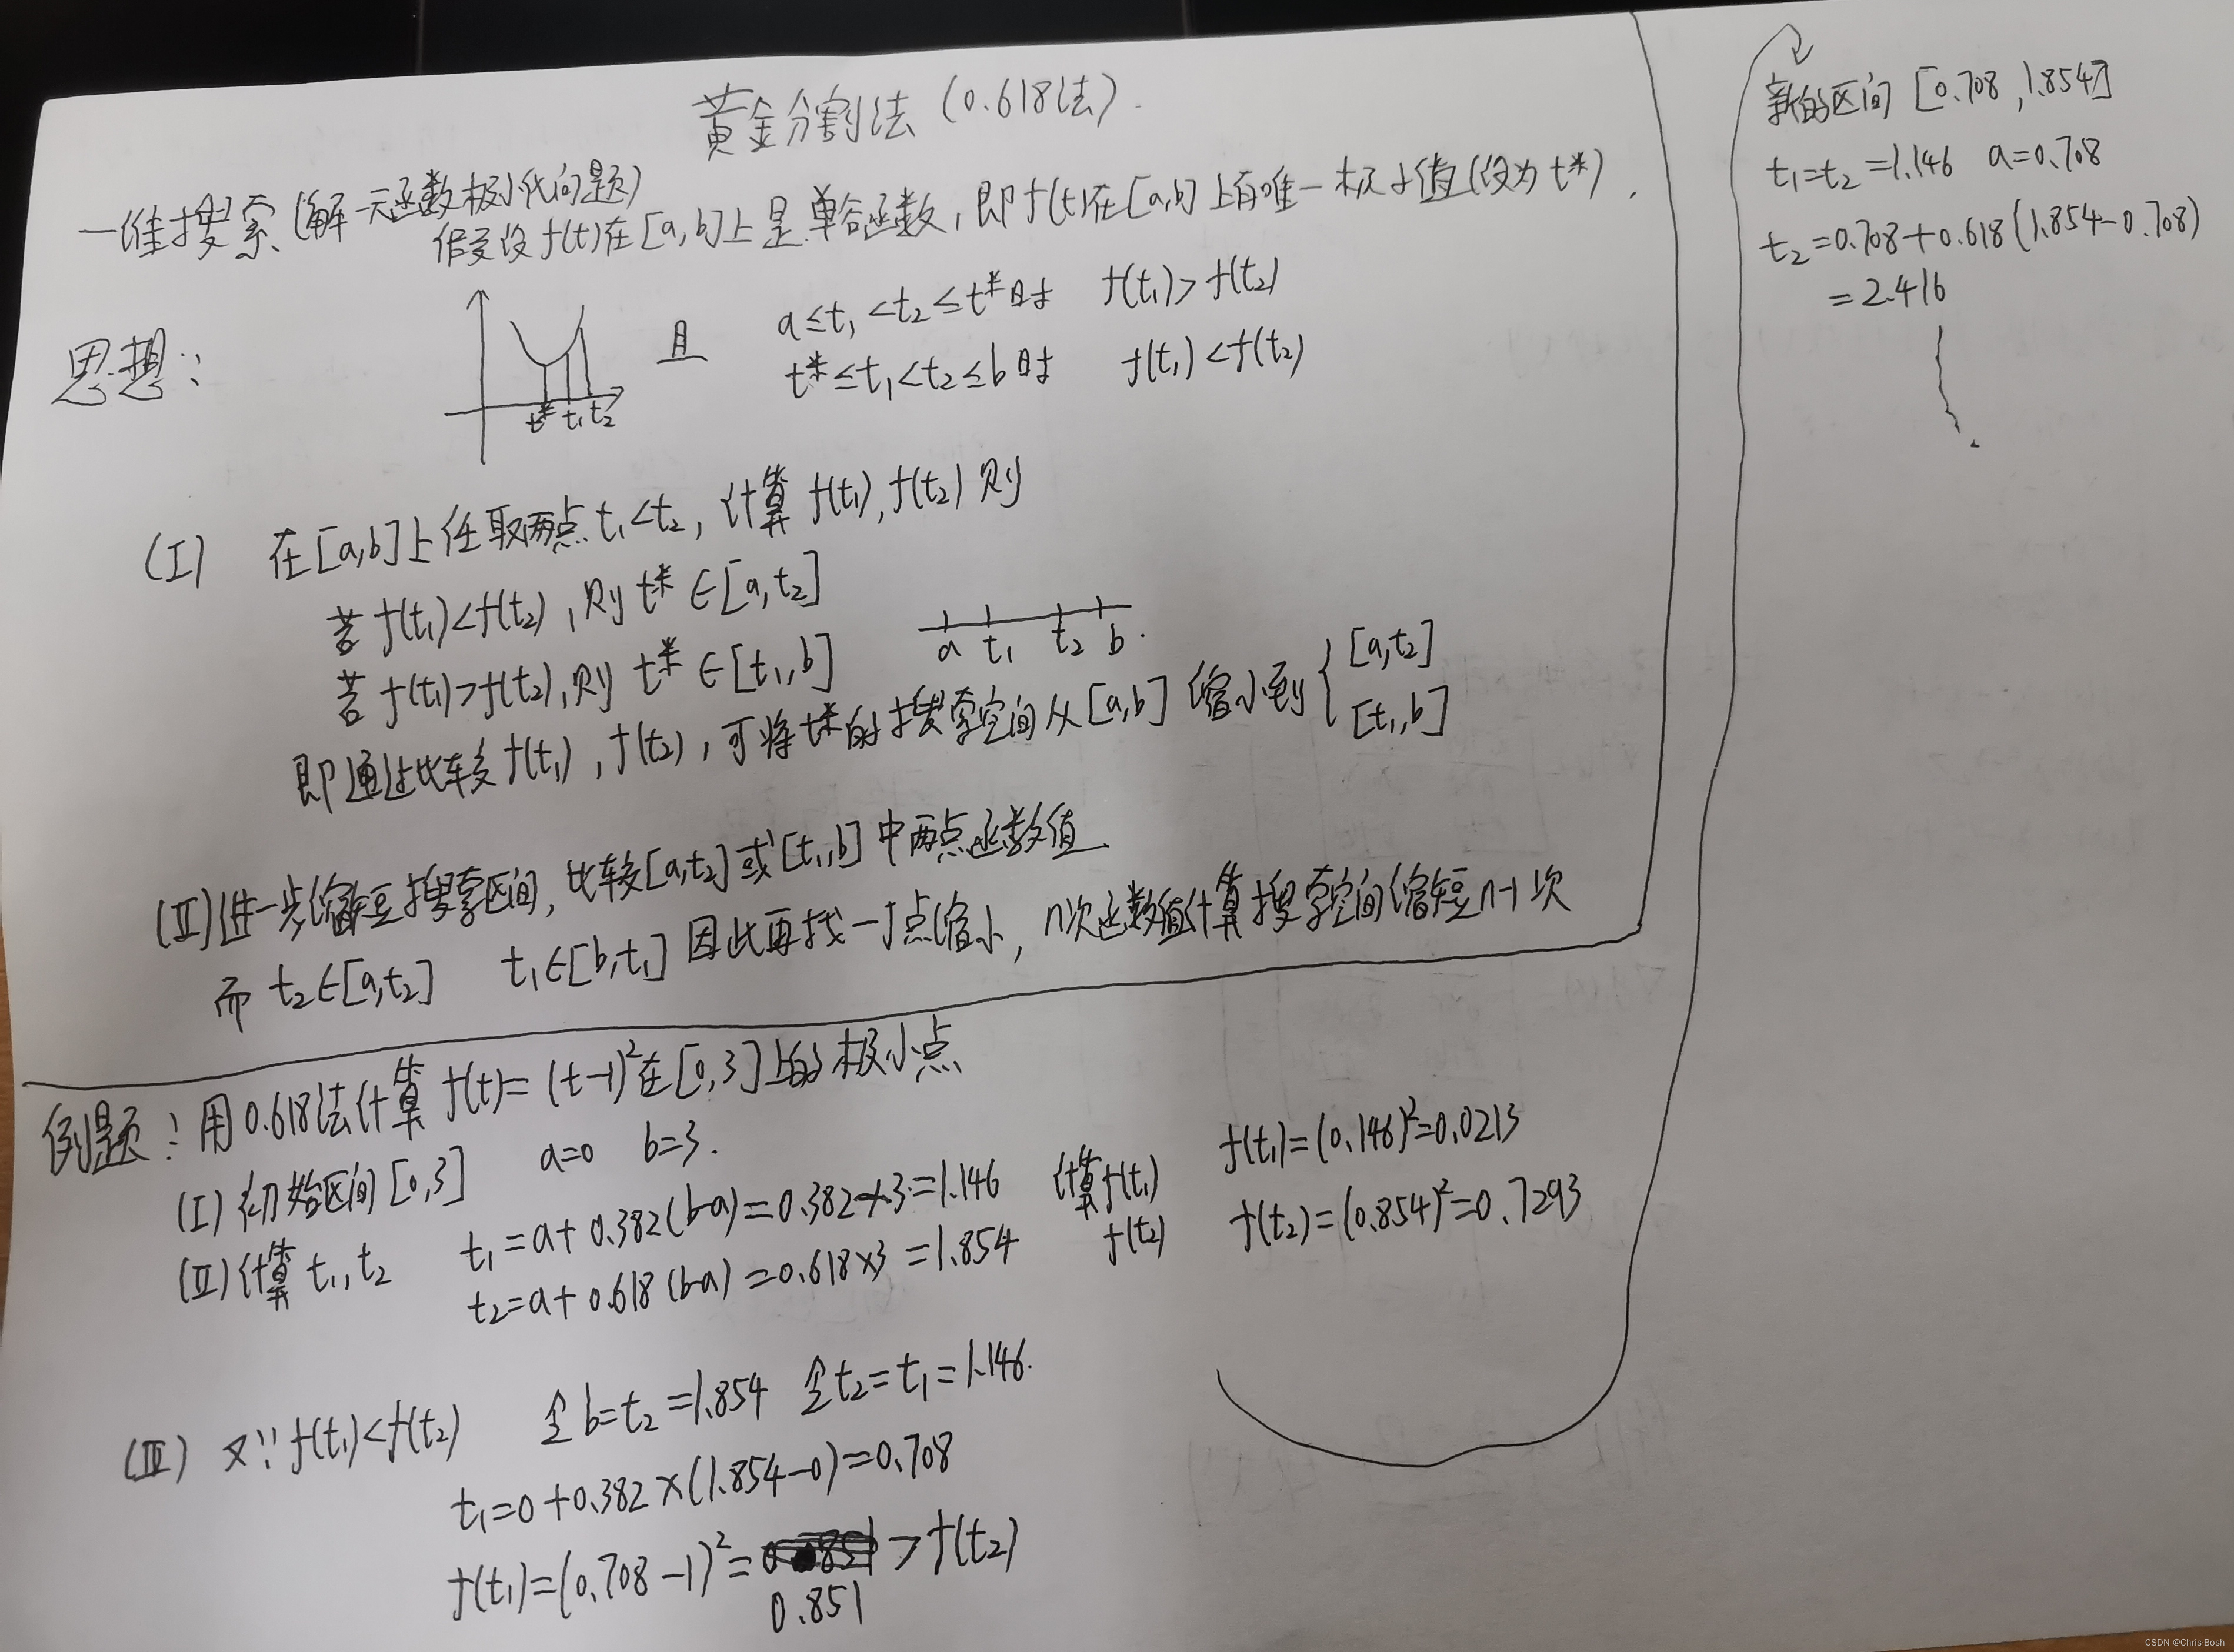 黄金分割法 (0.618法).
一维搜索 (解一元函数极小化问题)
假设 f(t)在[a,b]上是单谷函数, 即f(t)在[a,b]上有唯一极小值(设为 t*).
思想:
t* t₁ t₂
且
a≤t₁<t₂≤t*时 f(t₁)>f(t₂)
t*≤t₁<t₂≤b时 f(t₁)<f(t₂)
(I) 在[a,b]上任取两点 t₁<t₂, 计算 f(t₁), f(t₂) 则
若 f(t₁)<f(t₂), 则 t*∈[a,t₂]
若 f(t₁)>f(t₂), 则 t*∈[t₁,b]
a t₁ t₂ b.
即通过比较 f(t₁), f(t₂), 可将t*的搜索空间从[a,b] 缩小到 { [a,t₂]
[t₁,b]
(II) 进一步缩短搜索区间, 比较[a,t₂]或[t₁,b]中两点函数值
而 t₂∈[a,t₂] t₁∈[b,t₁] 因此再找一个点缩小, n次函数值计算搜索空间缩短n-1次
例题: 用0.618法计算 f(t)=(t-1)²在[0,3]上的极小点
(I) 初始区间[0,3] a=0 b=3.
(II) 计算 t₁,t₂ t₁=a+0.382(b-a)=0.382×3=1.146 计算f(t₁) f(t₁)=(0.146)²=0.0213
t₂=a+0.618(b-a)=0.618×3=1.854 f(t₂) f(t₂)=(0.854)²=0.7293
(III) 又∵f(t₁)<f(t₂) 令b=t₂=1.854 令t₂=t₁=1.146.
t₁=0+0.382×(1.854-0)=0.708
f(t₁)=(0.708-1)²= >f(t₂)
0.851
新的区间 [0.708,1.854]
t₁=t₂=1.146 a=0.708
t₂=0.708+0.618(1.854-0.708)
=2.416
CSDN @Chris·Bosh